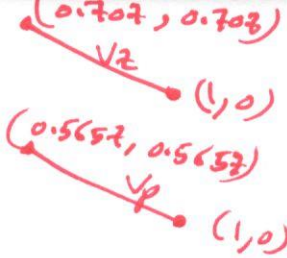 (0.707, 0.707)
Vz
(1,0)
(0.5657, 0.5657)
Vp
(1,0)